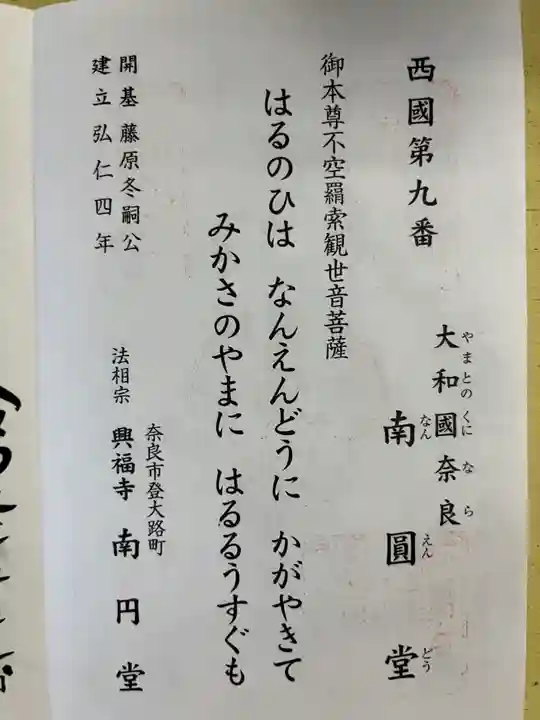 西國第九番
大和國奈良
やまとのくになら
南圓堂
なんえんどう
御本尊不空羂索観世音菩薩
はるのひは なんえんどうに かがやきて
みかさのやまに はるるうすぐも
開基 藤原冬嗣公
建立 弘仁四年
奈良市登大路町
法相宗 興福寺 南円堂